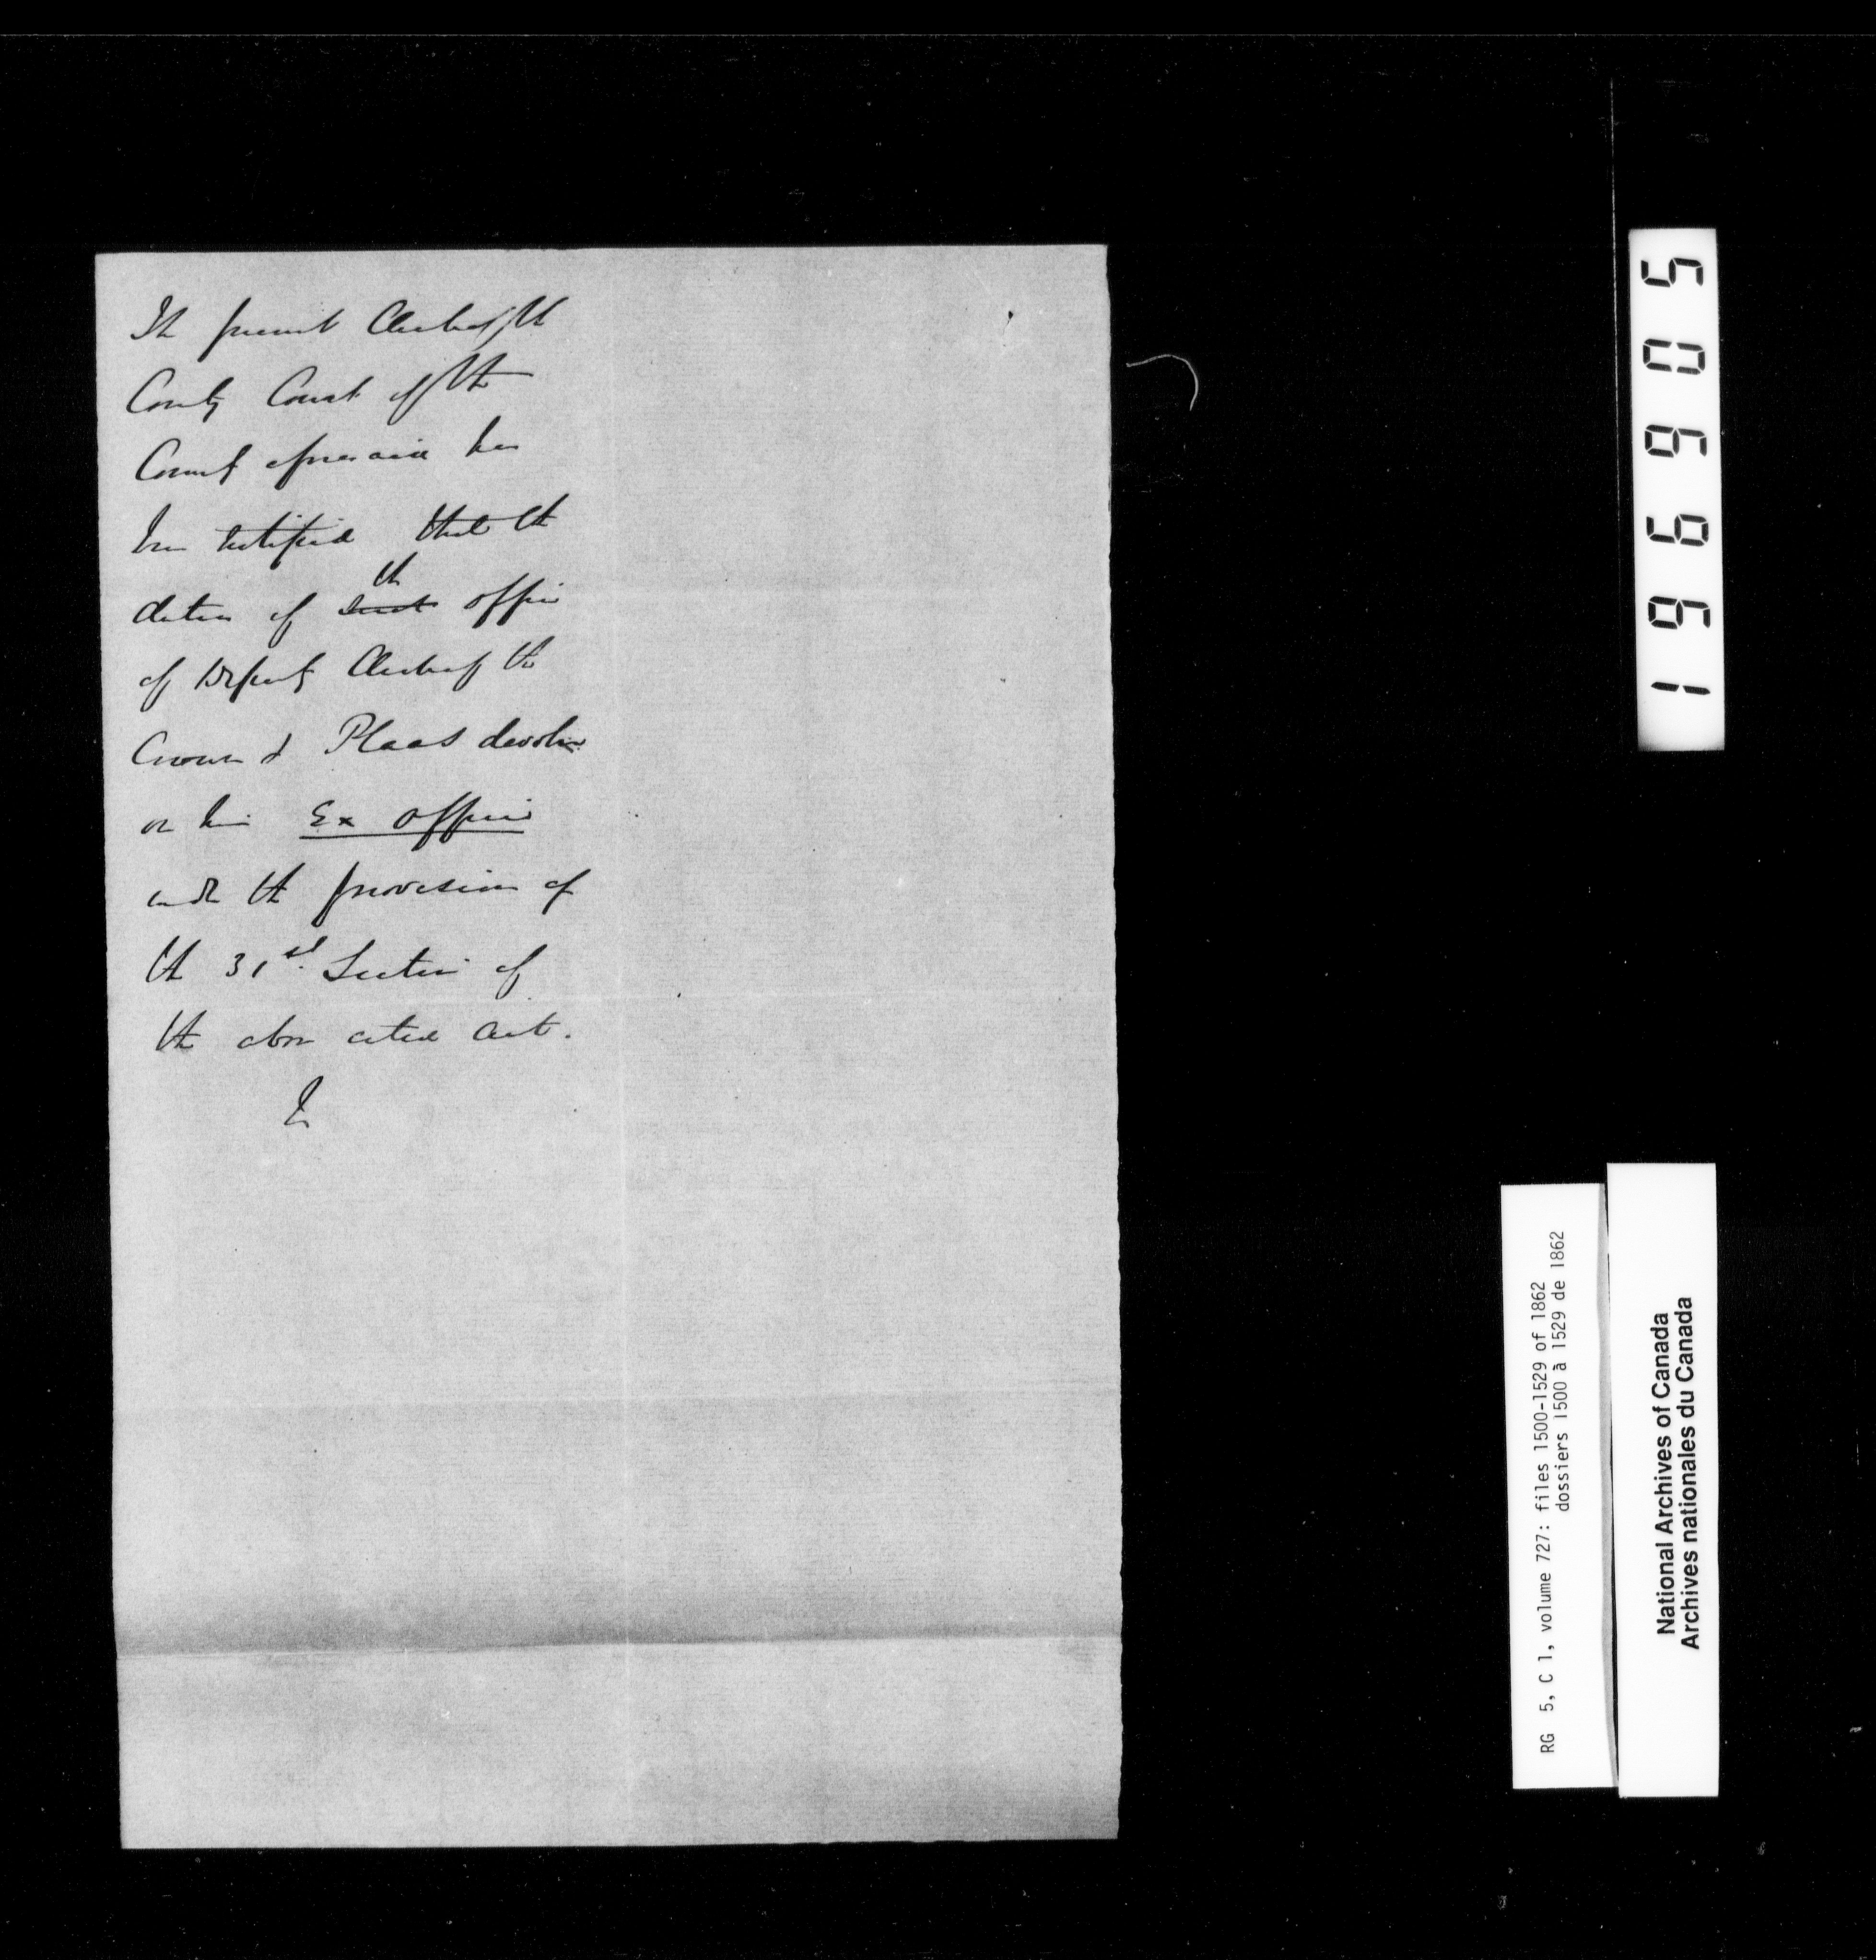 The present Clerk of the
County Court of the
County aforesaid has
been notified that the
duties of such the office
of Deputy Clerk of the
Crown & Pleas devolve
on him Ex officio
under the provision of
the 31st Section of
the above cited Act.
196905
RG 5, C 1, volume 727: files 1500-1529 of 1862
dossiers 1500 à 1529 de 1862
National Archives of Canada
Archives nationales du Canada